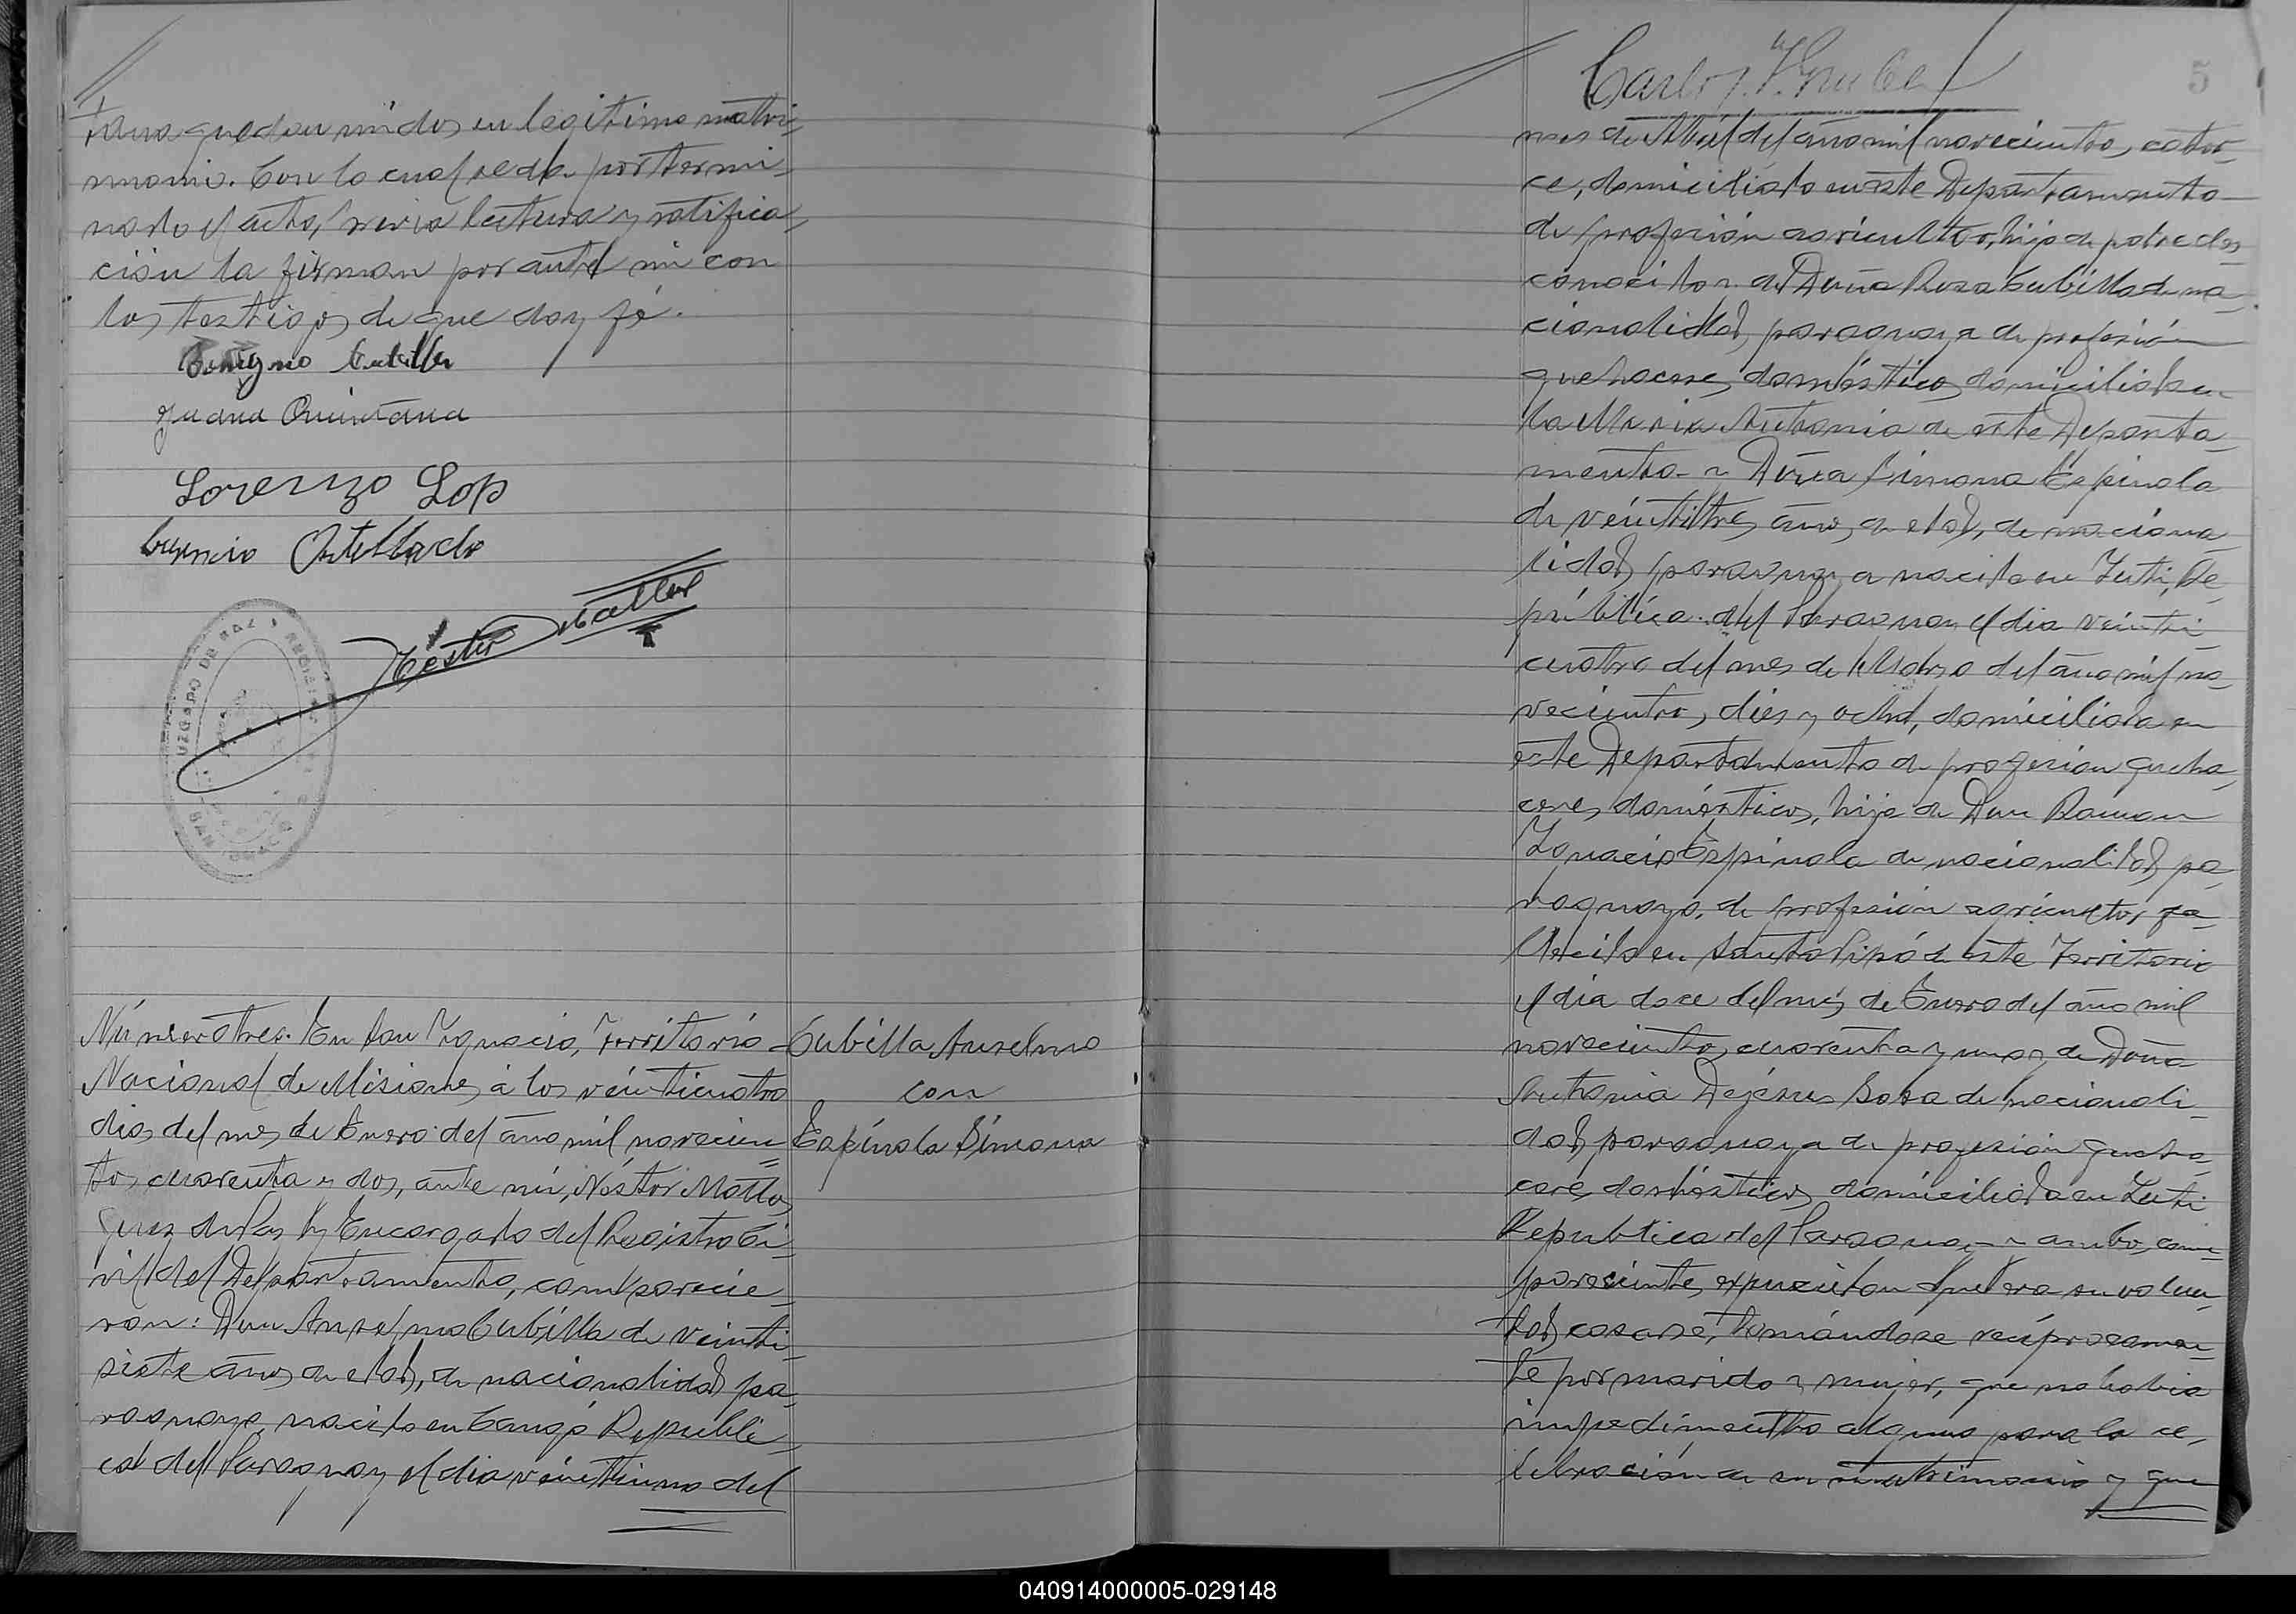 tana quedan unidos en legitimo matri-
monio. Con lo cual se dá por termi-
nado el acto, previa lectura y ratifica-
ción la firman por ante mi con
los testigos de que doy fé.
Benigno Cubilla
Juana Quintana
Lorenzo Lop
Ortellado
Néstor Mattos
JUZGADO DE PAZ Y REGISTRO
SAN IGNACIO
Número tres. En San Ignacio, Territorio
Nacional de Misiones, á los veinticuatro
dias del mes de Enero del año mil novecien-
tos cuarenta y dos, ante mi, Néstor Mattos,
Juez de Paz y Encargado del Registro Ci-
vil del Departamento, comparecie-
ron: Don Anselmo Cubilla de veinti-
siete años de edad, de nacionalidad pa-
raguayo, nacido en Cangó Repúbli-
ca del Paraguay el dia veintiuno del
Cubilla Anselmo
con
Espínola Simona
Carlos
5
mes de Abril del año mil novecientos cator-
ce, domiciliado en este Departamento
de profesión agricultor, hijo de padre des-
conocido y de Doña Rosa Cubilla de na-
cionalidad paraguaya de profesión
quehaceres domésticos domiciliada en
la Maria Antonia de este Departa-
mento- y Doña Simona Espinola
de veintitres años de edad, de naciona-
lidad paraguaya nacida en Yuti, Re-
pública del Paraguay el dia veinti-
cuatro del mes de Marzo del año mil no-
vecientos dies y ocho, domiciliada en
este Departamento de profesion queha-
ceres domésticos, hija de Don Ramon
Ygnacio Espinola de nacionalidad pa-
raguayo, de profesión agricultor fa-
llecido en Santo Pipó de este Territorio
el dia doce del mes de Enero del año mil
novecientos cuarenta y uno y de Doña
Antonia Dejesus Sosa de nacionali-
dad paraguaya de profesión queha-
ceres domésticos domiciliada en Yuti
Republica del Paraguay- y ambos com-
parecientes expusieron que era su volun-
tad casarse, tomándose recíprocamen-
te por marido y mujer, que no habia
impedimento alguno para la ce-
lebración de su matrimonio y que
040914000005-029148